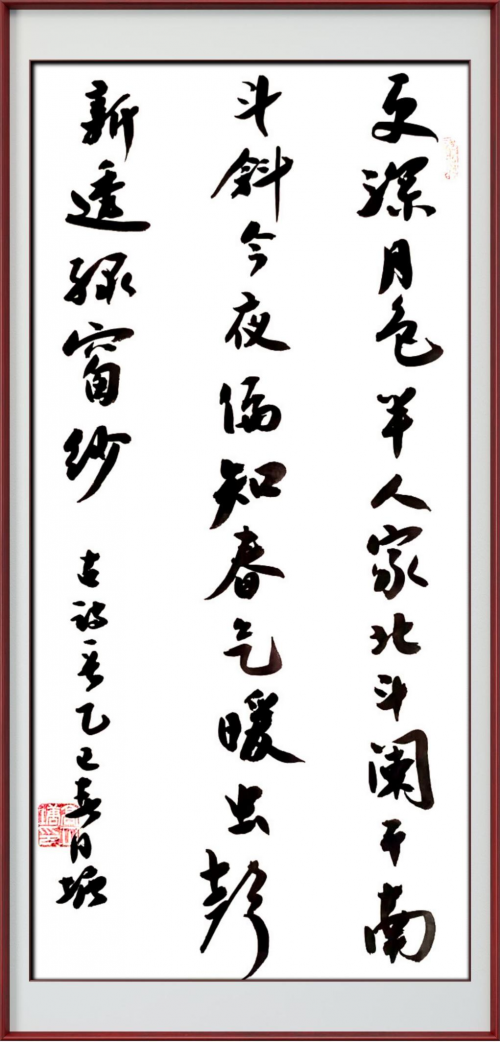 更深月色半人家北斗阑干南
斗斜今夜偏知春气暖虫声
新透绿窗纱 古诗一首乙巳春日